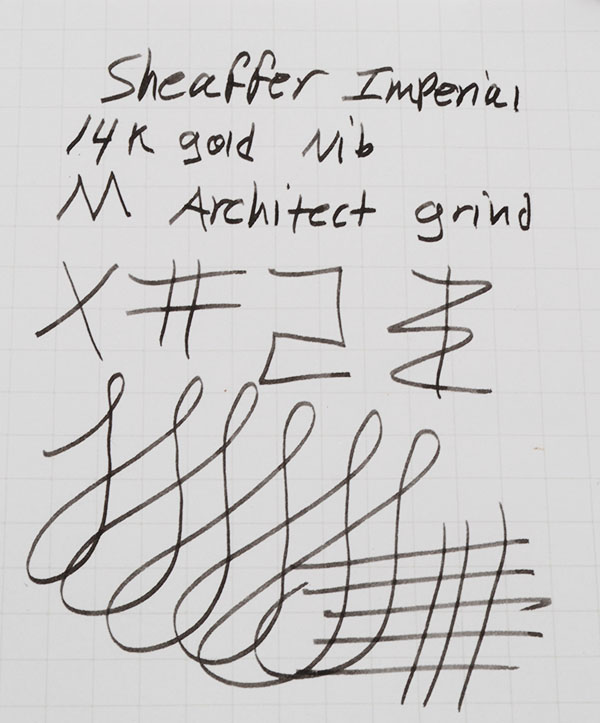 Sheaffer Imperial
14K gold Nib
M Architect grind
X # 2